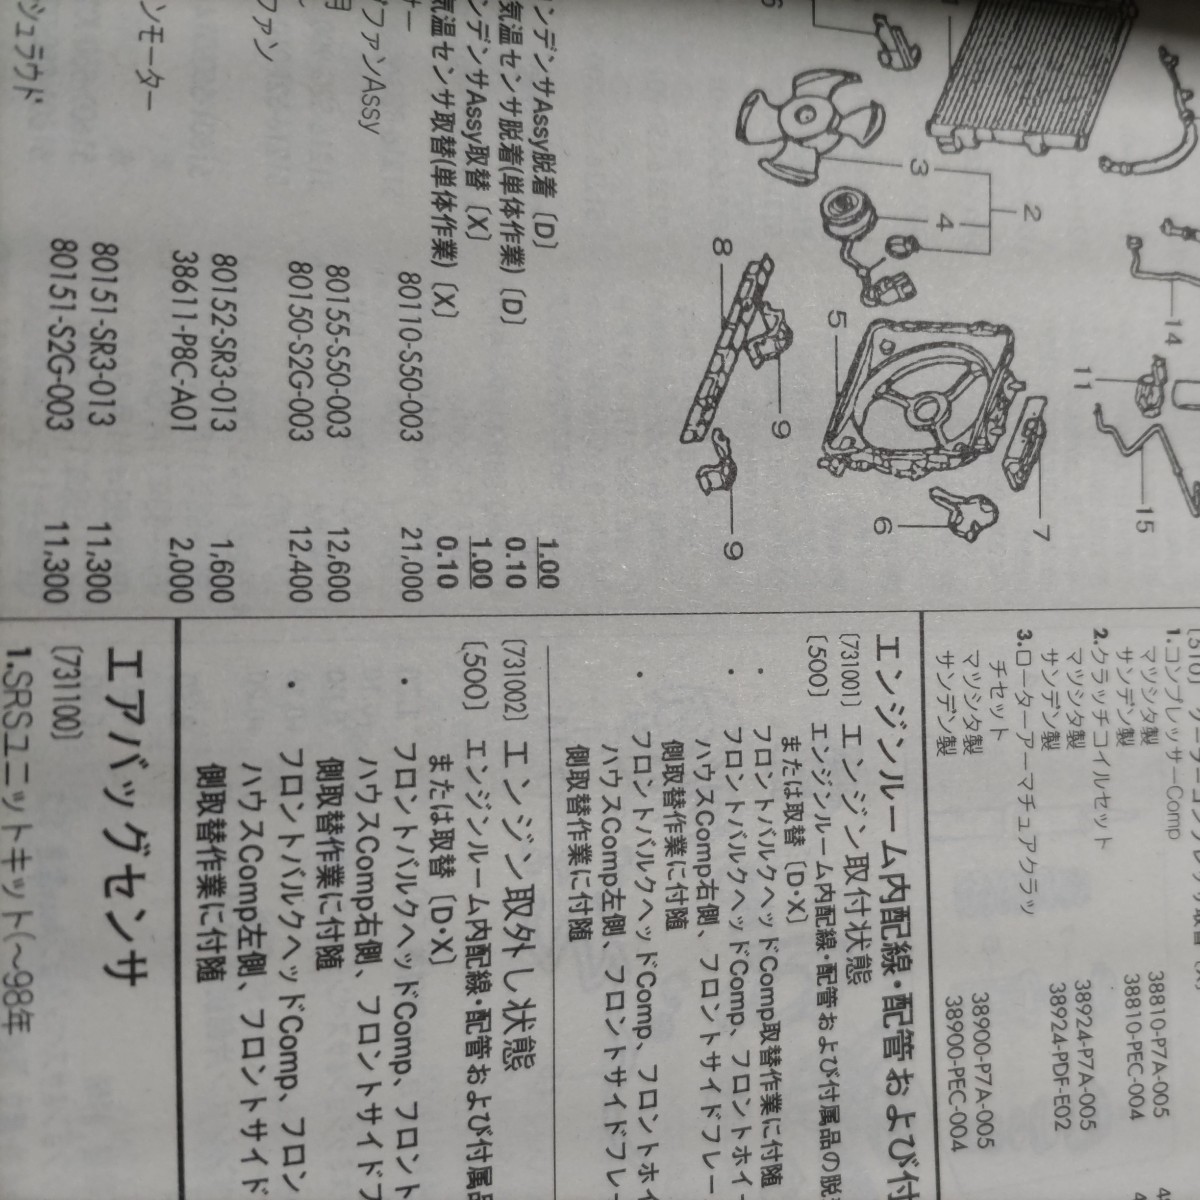 3
2
4
8
5
9
9
6
7
14
11
15
ンデンサAssy脱着〔D〕 1.00
気温センサ脱着(単体作業)〔D〕 0.10
ンデンサAssy取替〔X〕 1.00
気温センサ取替(単体作業)〔X〕 0.10
サー 80110-S50-003 21,000
ファンAssy
用 80155-S50-003 12,600
80150-S2G-003 12,400
ファン
80152-SR3-013 1,600
38611-P8C-A01 2,000
ンモーター
80151-SR3-013 11,300
80151-S2G-003 11,300
シュラウド
〔510〕
1.コンプレッサーComp
マツシタ製 38810-P7A-005
サンデン製 38810-PEC-004
2.クラッチコイルセット
マツシタ製 38924-P7A-005
サンデン製 38924-PDF-E02
3.ローターアーマチュアクラッ
チセット
マツシタ製 38900-P7A-005
サンデン製 38900-PEC-004
エンジンルーム内配線・配管および付
〔731001〕 エンジン取付状態
〔500〕 エンジンルーム内配線・配管および付属品の脱
または取替〔D・X〕
・ フロントバルクヘッドComp取替作業に付随
・ フロントバルクヘッドComp、フロントホイー
ハウスComp右側、フロントサイドフレー
側取替作業に付随
・ フロントバルクヘッドComp、フロントホイ
ハウスComp左側、フロントサイドフレー
側取替作業に付随
〔731002〕 エンジン取外し状態
〔500〕 エンジンルーム内配線・配管および付属品
または取替〔D・X〕
・ フロントバルクヘッドComp、フロント
ハウスComp右側、フロントサイドフ
側取替作業に付随
・ フロントバルクヘッドComp、フロン
ハウスComp左側、フロントサイド
側取替作業に付随
エアバッグセンサ
〔731100〕
1.SRSユニットキット(〜98年